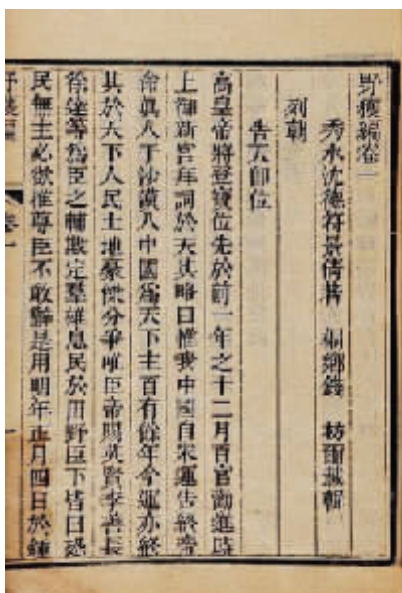 野獲編卷一
秀水沈德符景倩著 桐鄉錢 枋爾載輯
列朝
告天即位
高皇帝將登寶位先於前一年之十二月百官勸進時
上御新宮拜詞於天其略曰惟我中國自宋運告終帝
命眞人于沙漠入中國爲天下主百有餘年今運亦終
其於天下人民土地豪傑分爭惟臣帝賜英賢李善長
徐達等爲臣之輔戡定羣雄息民於田野臣下皆曰恐
民無主必欲推尊臣不敢辭是用明年正月四日於鍾
卷一